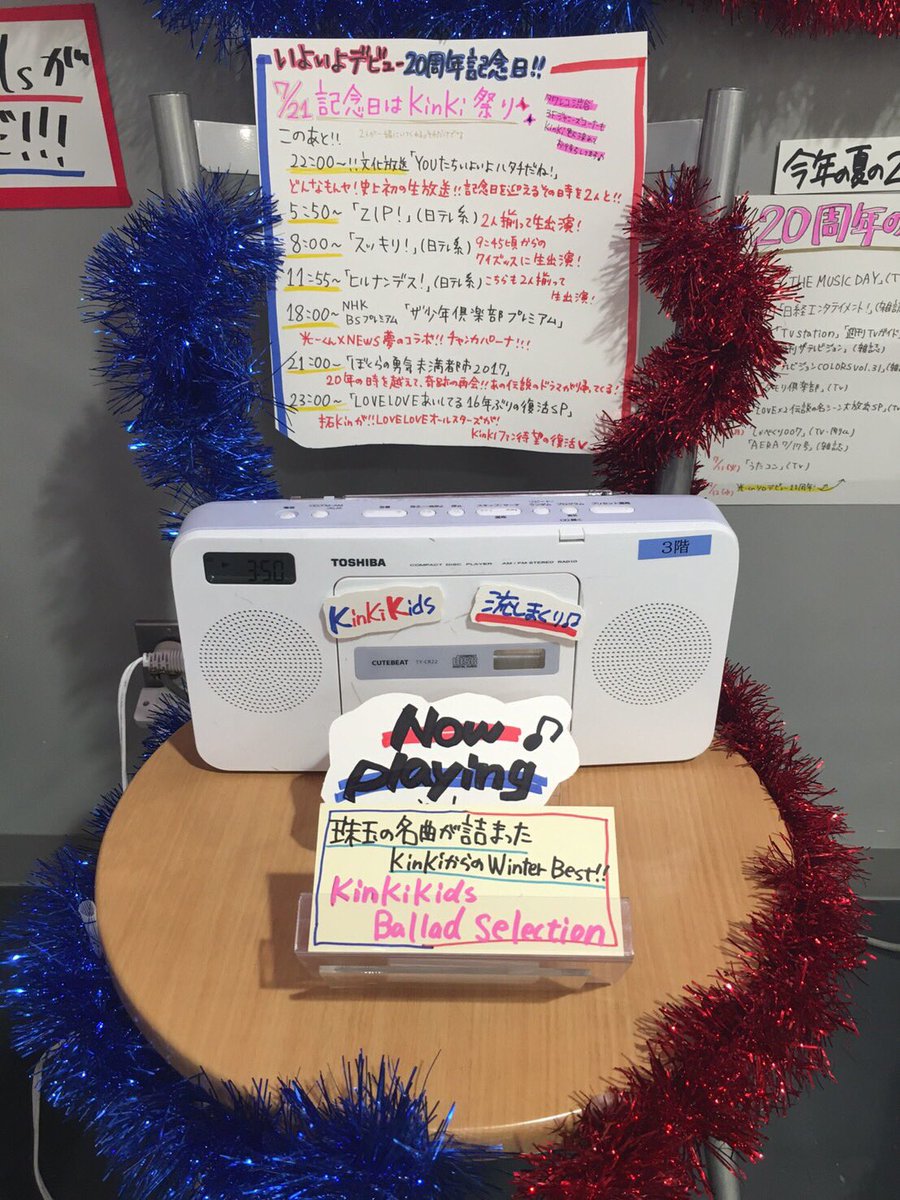 lsが
!!!
いよいよデビュー20周年記念日!!
7/21 記念日はKinKi祭り
タワレコ渋谷
このあと!!
22:00~!!文化放送「YOUたちいよいよハタチだね!」
どんなもんヤ!史上初の生放送!!記念日を迎えるその時を2人と!!
5:50~「ZIP!」(日テレ系)2人揃って生出演!
8:00~「スッキリ!」(日テレ系)9:45頃からの
クイズッスに生出演!
11:55~「ヒルナンデス!」(日テレ系)こちらも2人揃って
生出演!
18:00~NHK
BSプレミアム「ザ少年倶楽部プレミアム」
光一くん×NEWS夢のコラボ!!チャンカパーナ!!!
21:00~「ぼくらの勇気未満都市2017」
20年の時を越えて、奇跡の再会!!あの伝説のドラマが帰ってくる!
23:00~「LOVELOVEあいしてる16年ぶりの復活SP」
拓Kinが!!LOVELOVEオールスターズが!
KinKiファン待望の復活
今年の夏の2
20周年の
THE MUSIC DAY」(TV
日経エンタテイメント!」(雑誌
「TV station」「週刊TVガイド」
刊ザテレビジョン」(雑誌)
ビジョンCOLORS vol.31」(雑
倶楽部」(TV)
LOVE×2伝説の名シーン大放出SP」(TV
しゃべくり007」(TV
「AERA 7/17号」(雑誌)
「うたコン」(TV)
TOSHIBA
COMPACT DISC PLAYER AM・FM STEREO RADIO
3階
3:50
KinKi Kids
流しまくり♫
CUTEBEAT TY-CR22
Now
Playing
珠玉の名曲が詰まった
KinKiからのWinter Best!!
KinKiKids
Ballad Selection